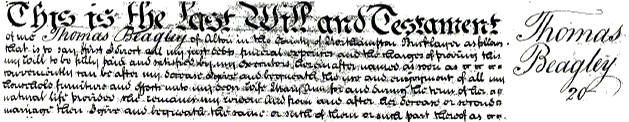 This is the Last Will and Testament
of me Thomas Beagley of Alton in the County of Southampton Bricklayer as follows
that is to say first I direct all my just debts funeral expenses and the charges of proving this
my Will to be fully paid and satisfied by my Executors hereinafter named as soon as
conveniently can be after my decease I give and bequeath the use and enjoyment of all my
household furniture and effects unto my dear Wife Mary Ann for and during the term of her
natural life provided she remains my widow And from and after her decease or second
marriage then I give and bequeath the same or such of them or such part thereof as
Thomas
Beagley
20